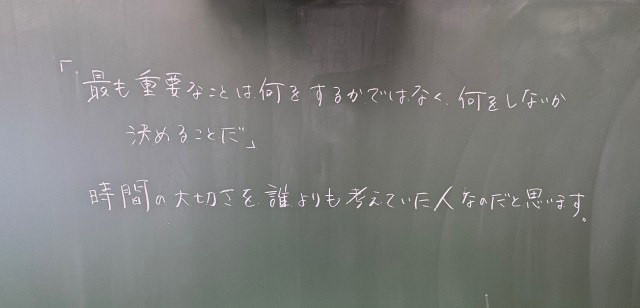 「最も重要なことは何をするかではなく、何をしないか
決めることだ」
時間の大切さを誰よりも考えていた人なのだと思います。